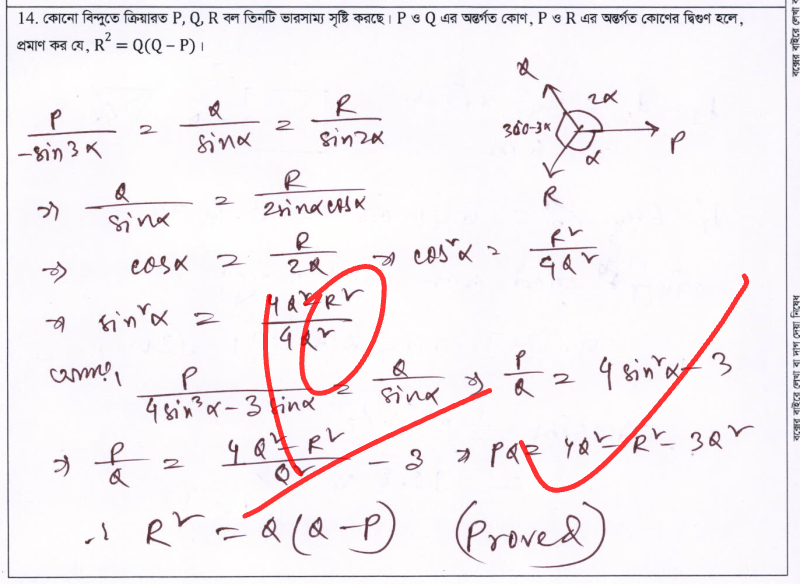 14. কোনো বিন্দুতে ক্রিয়ারত P, Q, R বল তিনটি ভারসাম্য সৃষ্টি করছে। P ও Q এর অন্তর্গত কোণ, P ও R এর অন্তর্গত কোণের দ্বিগুণ হলে,
প্রমাণ কর যে, R² = Q(Q – P)।
Q
2α
360-3α
P
α
R
P/-sin3α = Q/sinα = R/sin2α
⇒ Q/sinα = R/2sinαcosα
⇒ cosα = R/2Q ⇒ cos²α = R²/4Q²
⇒ sin²α = 4Q²-R²/4Q²
P/4sin³α-3sinα = Q/sinα ⇒ P/Q = 4sin²α-3
⇒ P/Q = 4Q²-R²/Q² - 3 ⇒ PQ = 4Q²-R²-3Q²
∴ R² = Q(Q-P) (Proved)